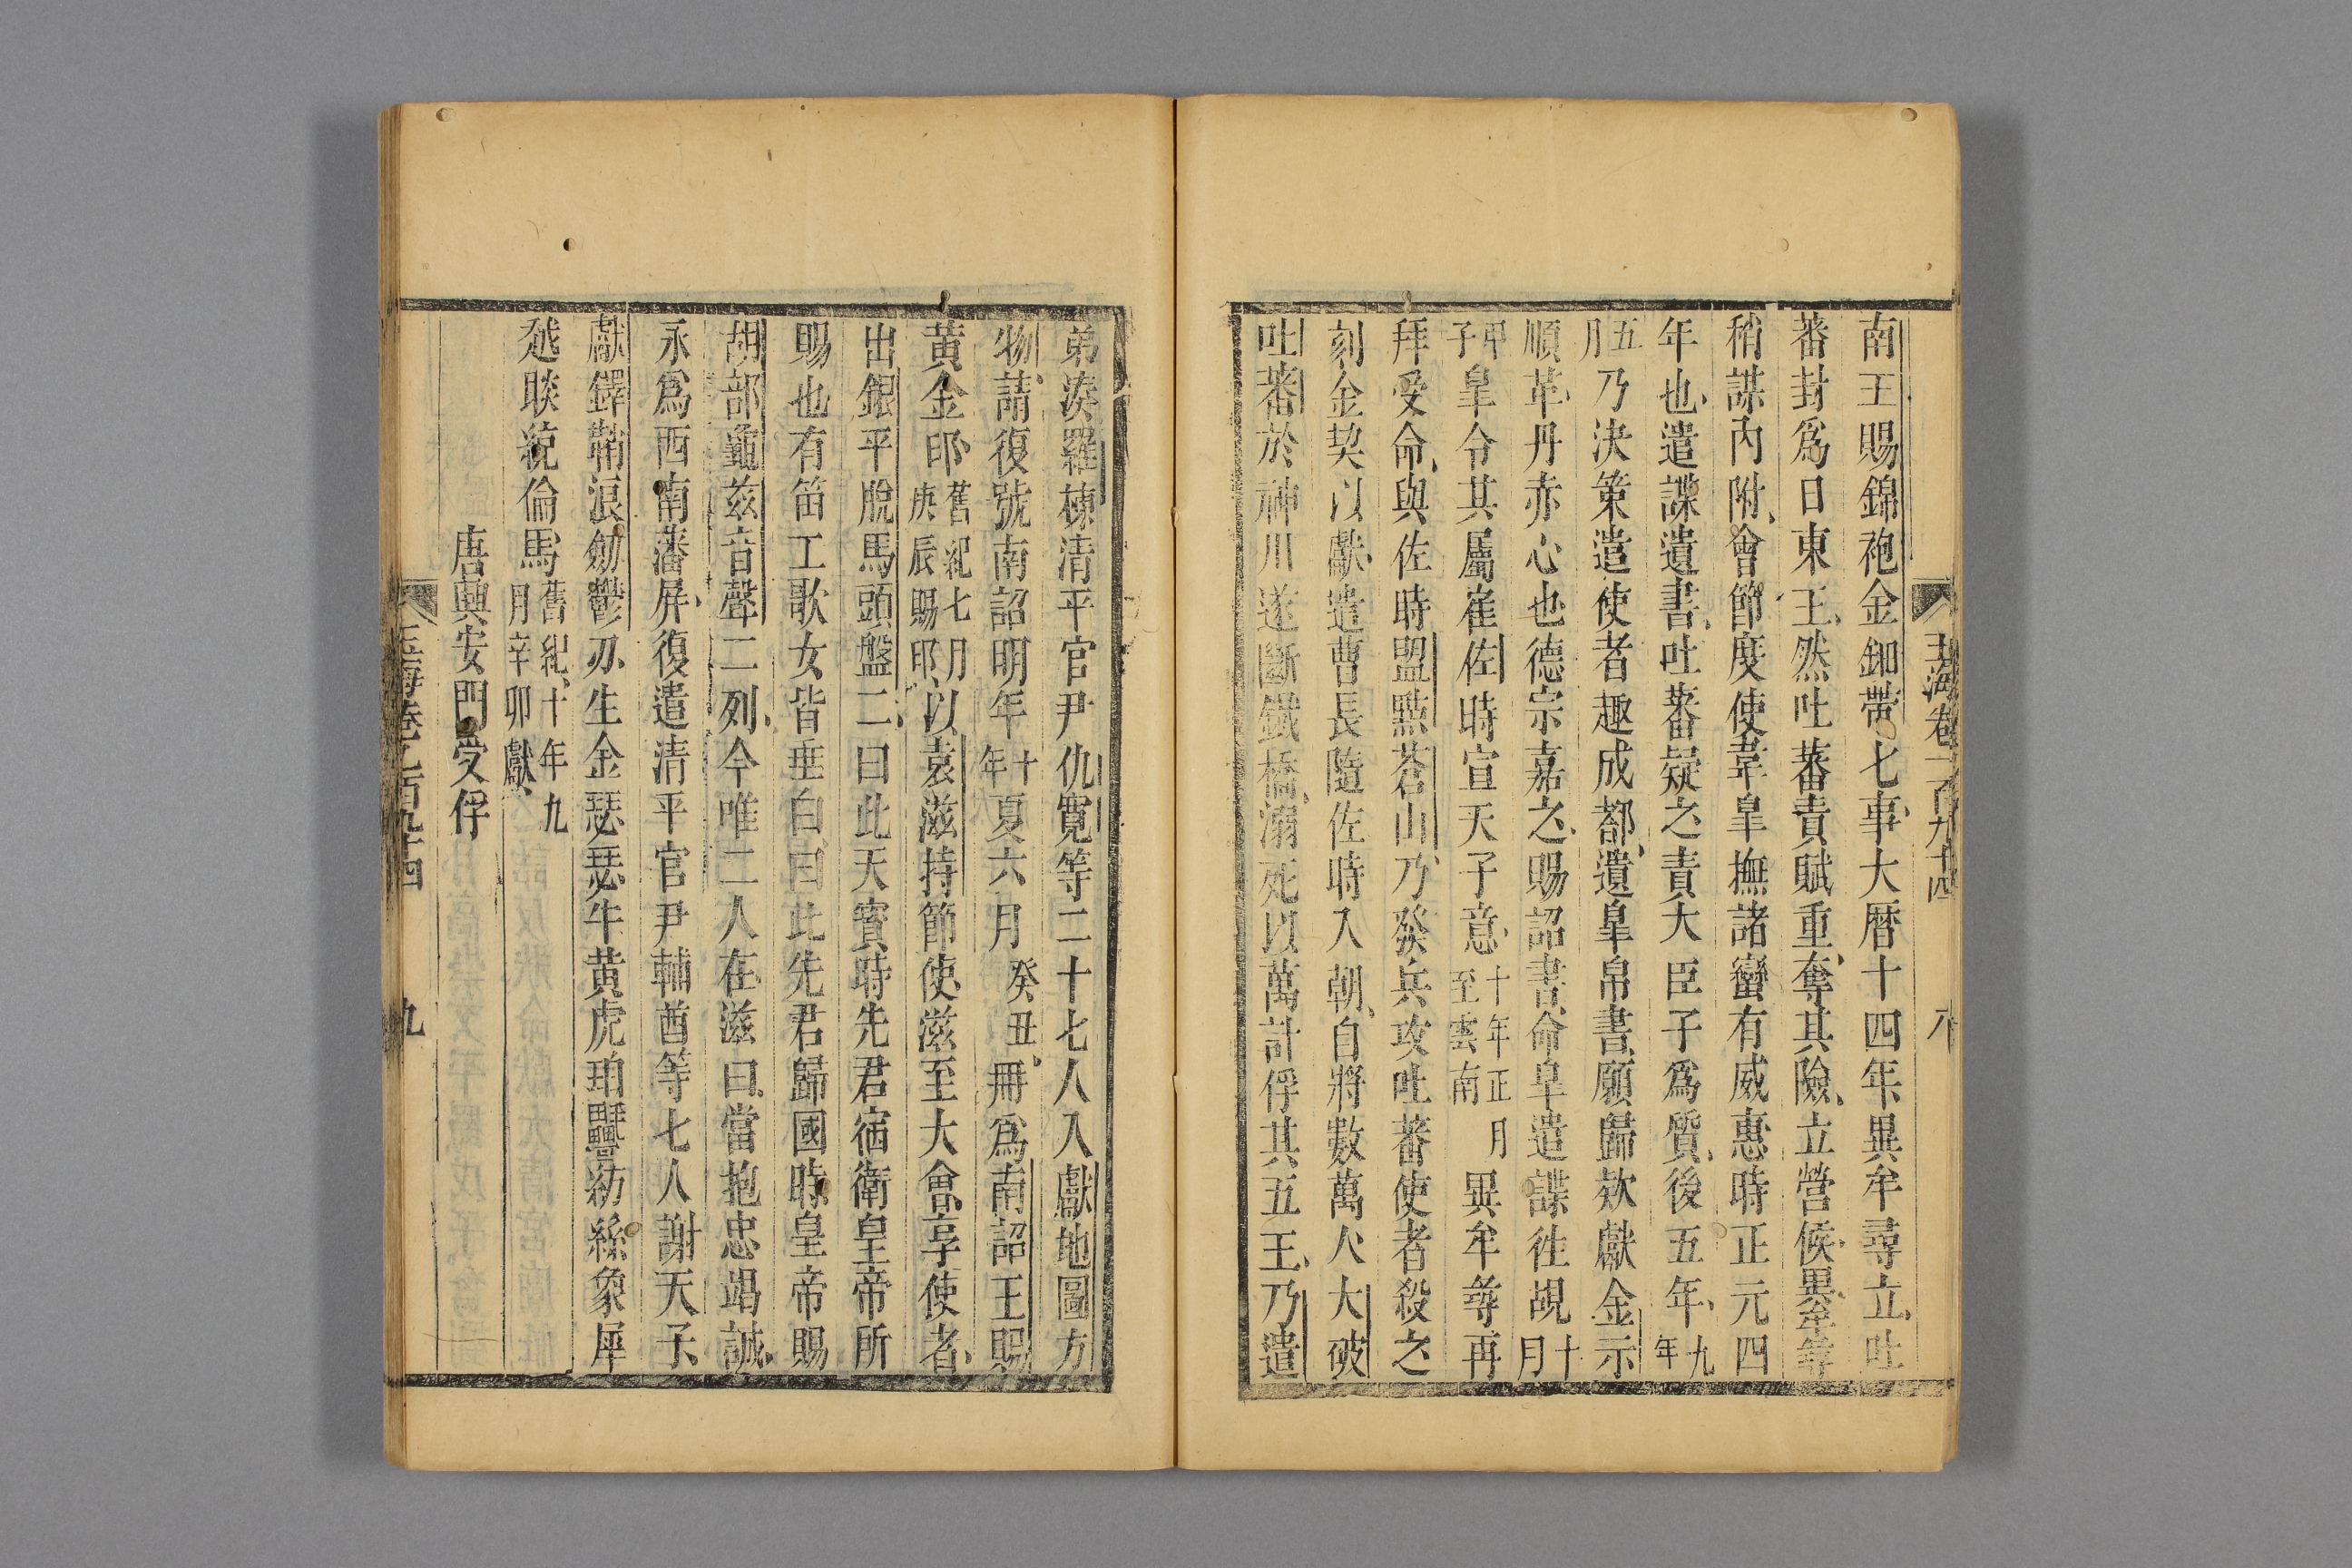 玉海卷一百九十四 八
南王賜錦袍金鈿帶七事大曆十四年異牟尋立吐
蕃封爲日東王然吐蕃責賦重奪其險立營候異牟尋
稍謀內附會節度使韋皐撫諸蠻有威惠時正元四
年也遣諜遺書吐蕃疑之責大臣子爲質後五年九年
五月乃決策遣使者趣成都遺皐帛書願歸款獻金示
順革丹赤心也德宗嘉之賜詔書命皐遣諜徃覘十月
甲子皐令其屬崔佐時宣天子意十年正月至雲南異牟尋再
拜受命與佐時盟點蒼山乃發兵攻吐蕃使者殺之
刻金契以獻遣曹長隨佐時入朝自將數萬人大破
吐蕃於神川遂斷鐵橋溺死以萬計俘其五王乃遣
弟湊羅棟清平官尹仇寬等二十七人入獻地圖方
物請復號南詔明年十年夏六月癸丑冊爲南詔王賜
黃金印舊紀七月庚辰賜印以袁滋持節使滋至大會享使者
出銀平脫馬頭盤二曰此天寶時先君宿衛皇帝所
賜也有笛工歌女皆垂白曰此先君歸國時皇帝賜
胡部龜兹音聲二列今唯二人在滋曰當抱忠竭誠
永爲西南藩屏復遣清平官尹輔酋等七人謝天子
獻鐸鞘浪劒鬱刃生金瑟瑟牛黃虎珀㲲紡絲象犀
越睒統倫馬舊紀十年九月辛卯獻
唐興安門受俘
玉海卷一百九十四 九